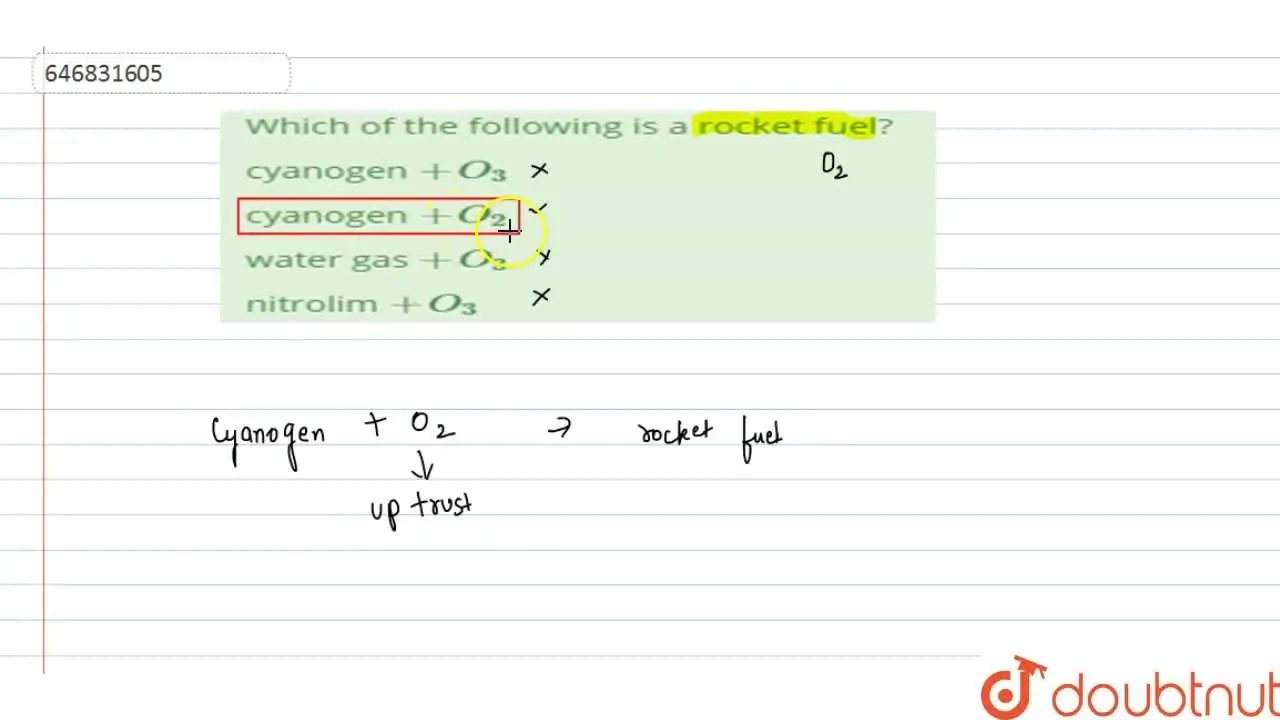 646831605
Which of the following is a rocket fuel?
cyanogen + O₃ ×
O₂
cyanogen + O₂ ✓
water gas + O₃ ×
nitrolim + O₃ ×
Cyanogen + O₂ → rocket fuel
↓
up trust
doubtnut